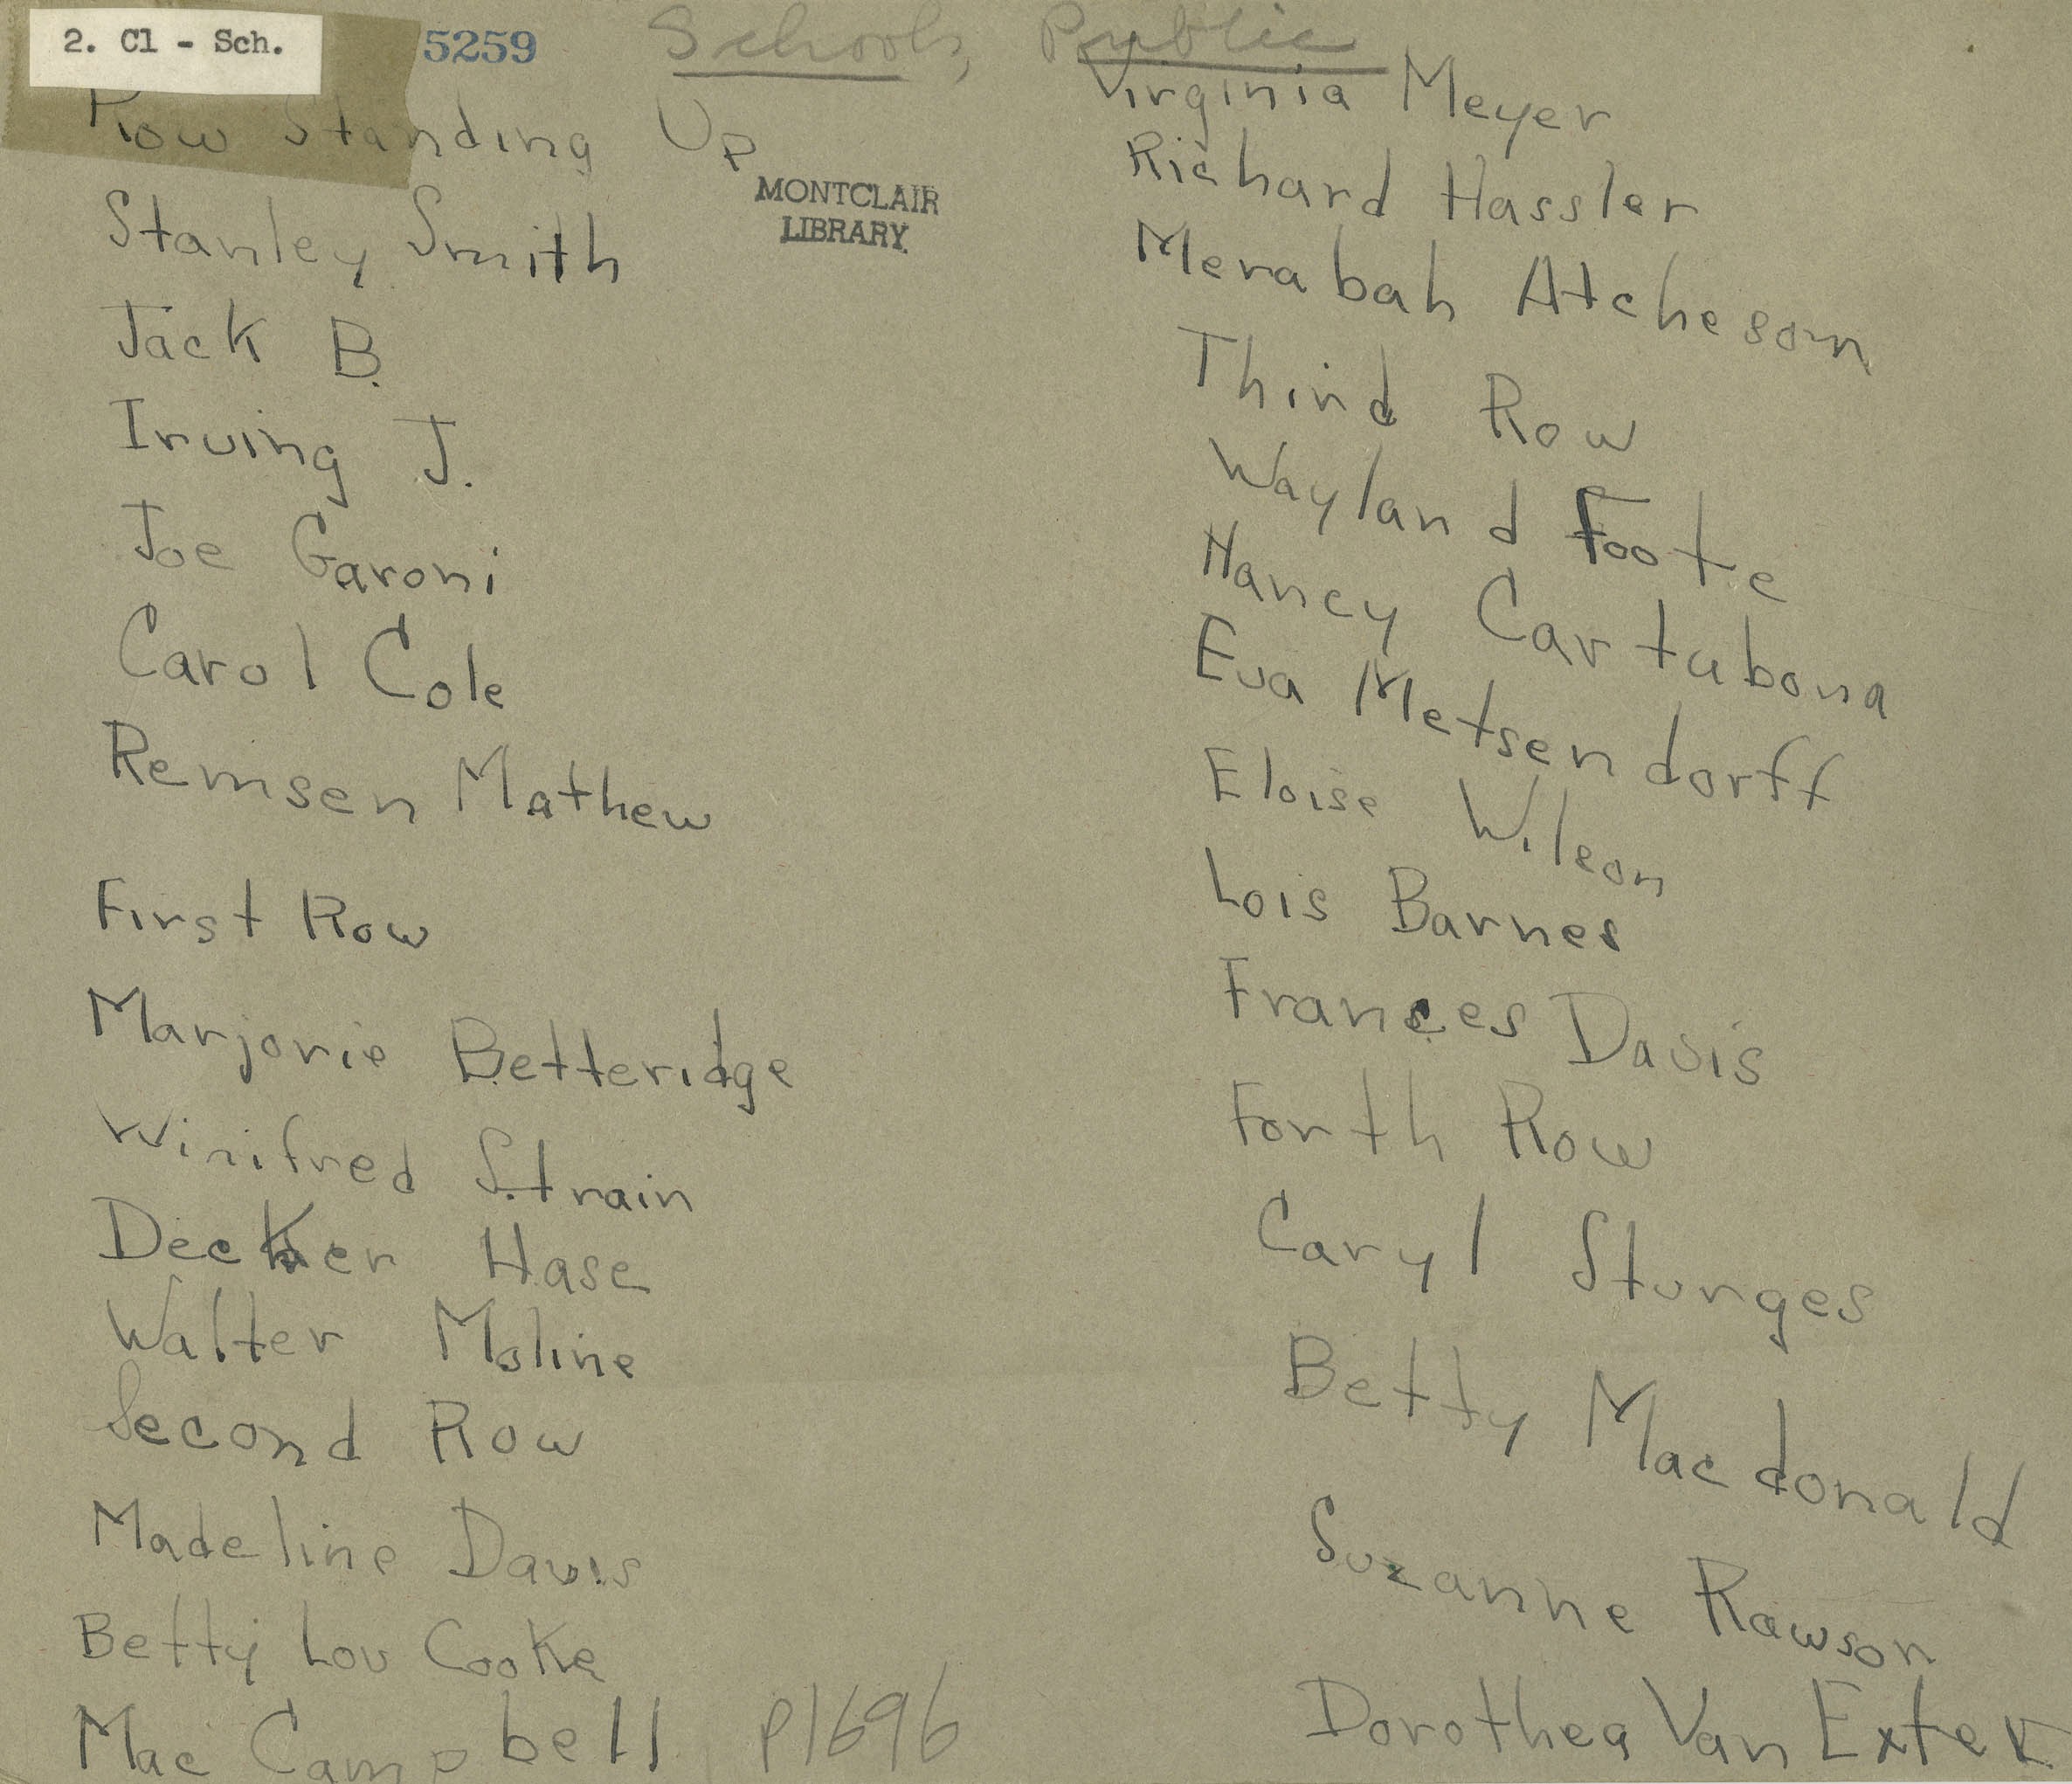 2. Cl - Sch.
5259
Schools, Public
Row Standing Up
MONTCLAIR
LIBRARY
Stanley Smith
Jack B.
Irving J.
Joe Garoni
Carol Cole
Remsen Mathew
First Row
Marjorie Betteridge
Winifred Strain
Decker Hase
Walter Moline
Second Row
Madeline Davis
Betty Lou Cooke
Mac Campbell
P1696
Virginia Meyer
Richard Hassler
Merabah Atcheson
Third Row
Wayland Foote
Nancy Cartabona
Eva Metsendorff
Eloise Wilson
Lois Barnes
Frances Davis
Forth Row
Caryl Sturges
Betty Macdonald
Suzanne Rawson
Dorothea Van Exter